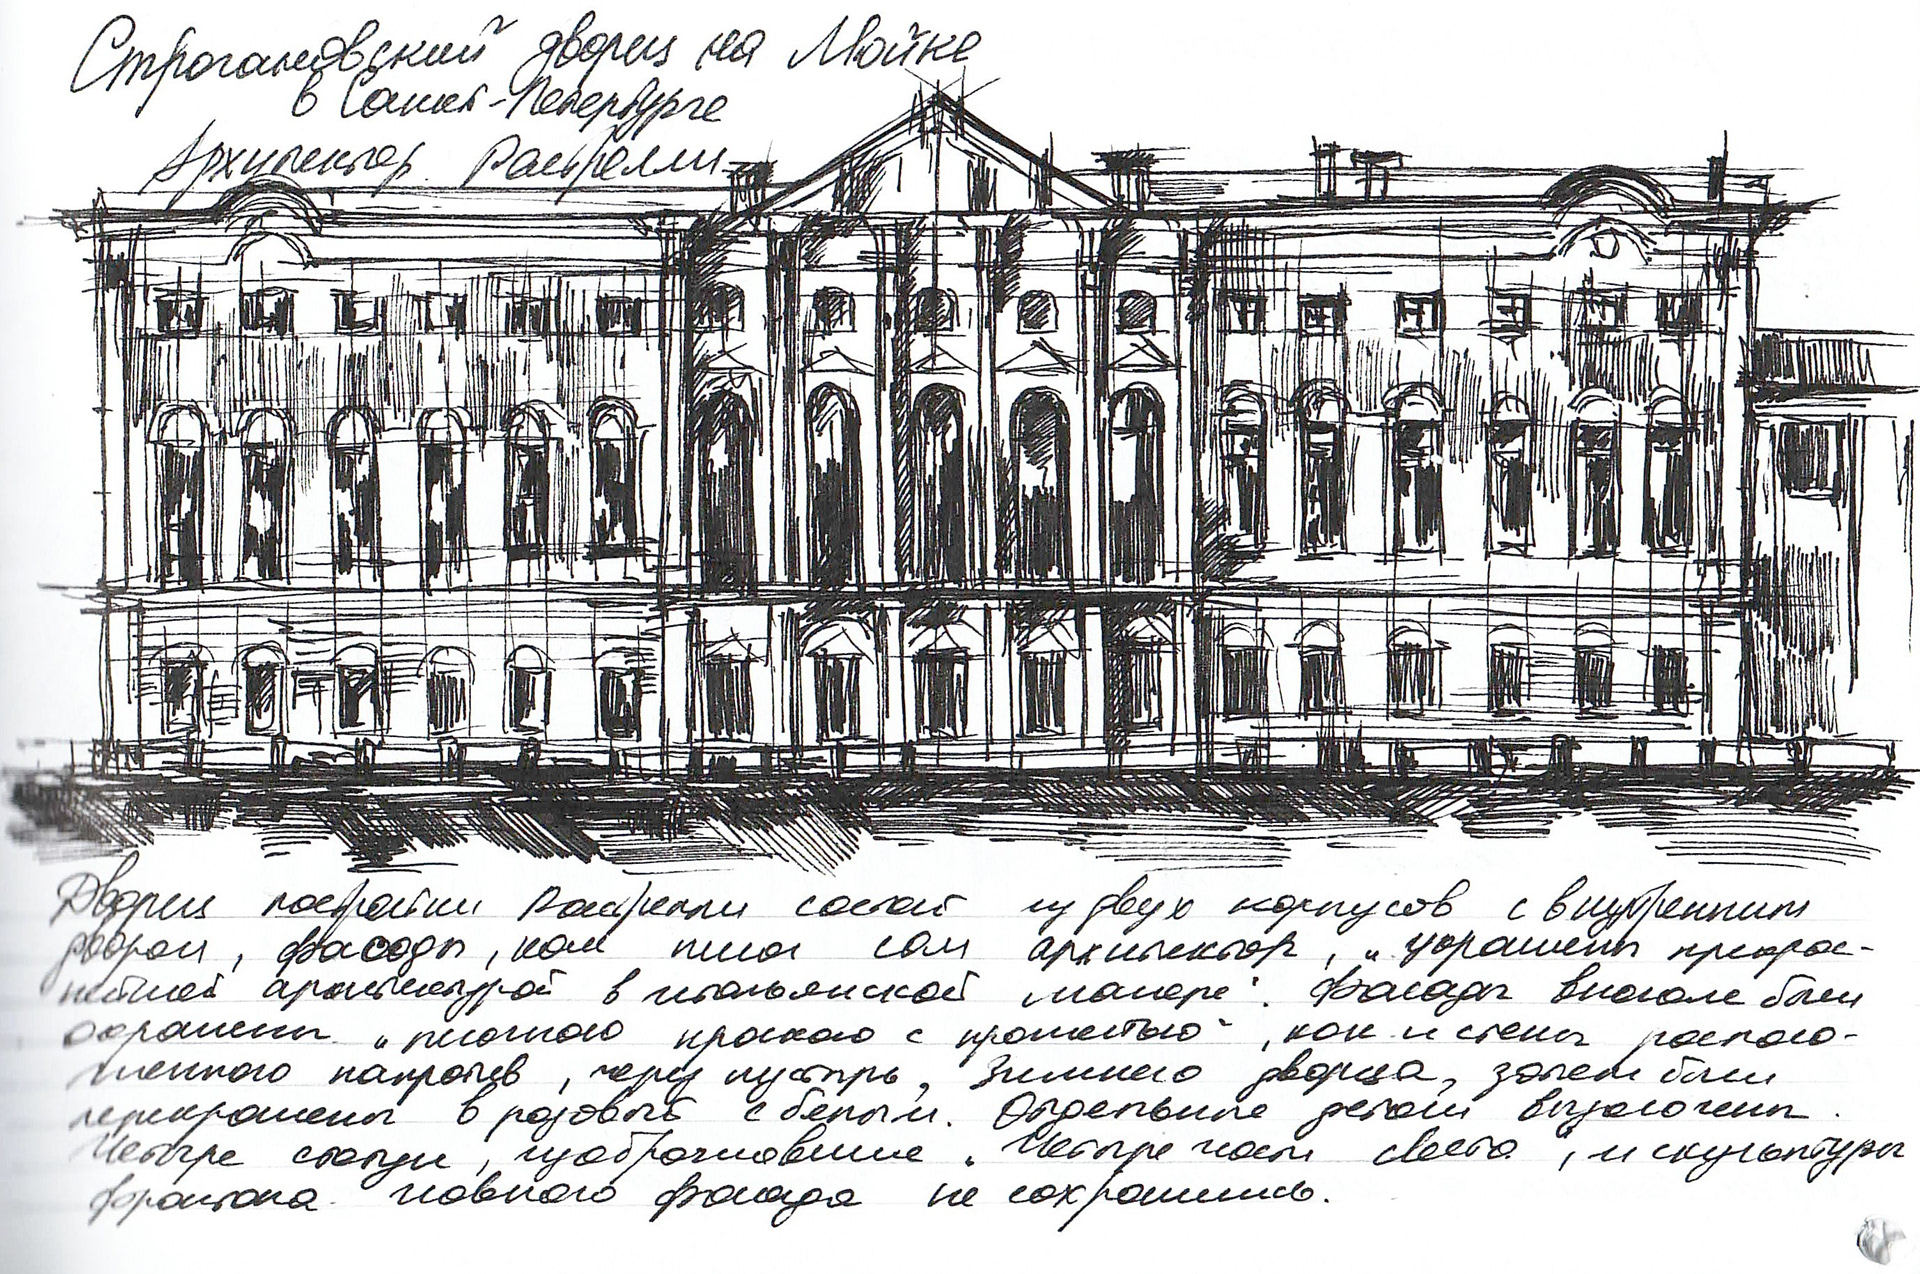 Строгановский дворец на Мойке
в Санкт-Петербурге
Архитектор Растрелли
Дворец постройки Растрелли состоит из двух корпусов с внутренним
двором, фасады, как писал сам архитектор, „украшены прекрас-
нейшей архитектурой в итальянской манере". Фасады вначале были
окрашены „песочною краскою с прожелтью", как и стены располо-
женного напротив, через пустырь, Зимнего дворца, затем были
перекрашены в розовый с белым. Отдельные детали вызолочены.
Четыре статуи, изображавшие „Четыре части света", и скульптуры
фронтона главного фасада не сохранились.